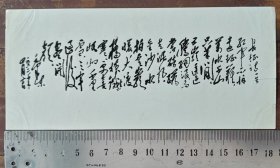 红军不怕
远征难
万水千山
只等闲
五岭逶迤
腾细浪
乌蒙磅礴
走泥丸
金沙水
拍云崖暖
大渡桥
横铁索
寒更喜
岷山千里
雪三军
过后
尽开
颜
毛泽东
1 2 3 4 5 6 7 8 9 10 11 12 13 14 15 16 17 18